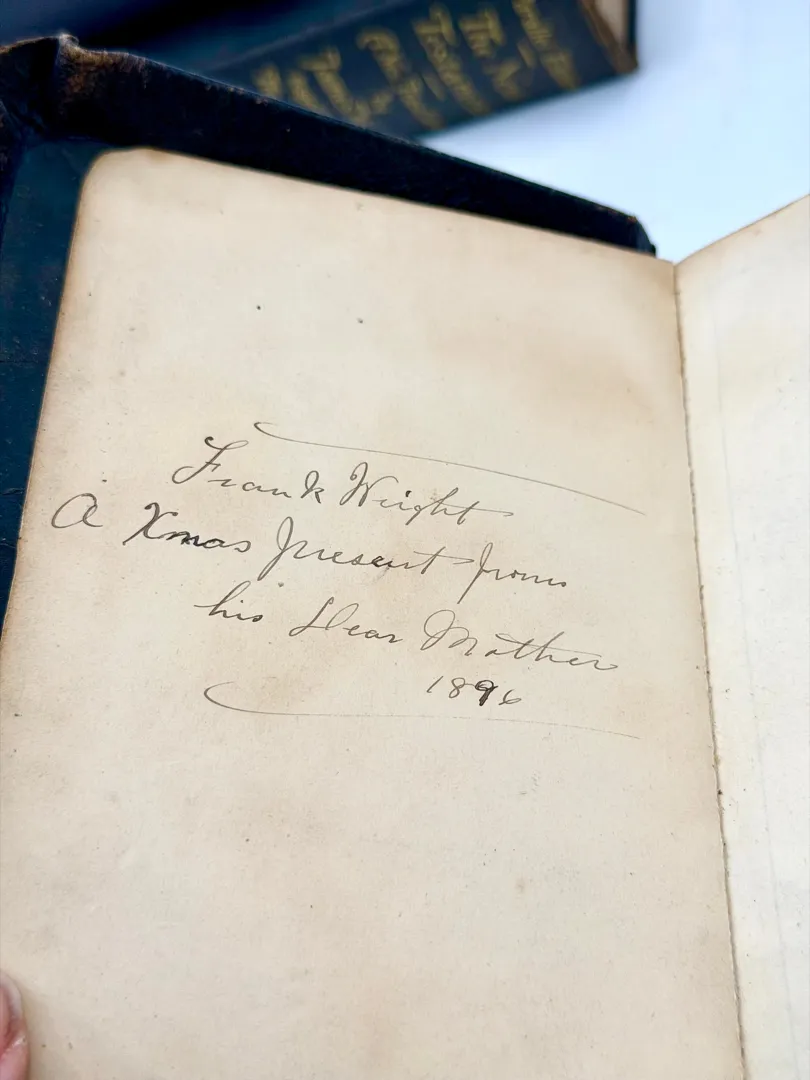 Frank Wright
A Xmas present from
his Dear Mother
1896